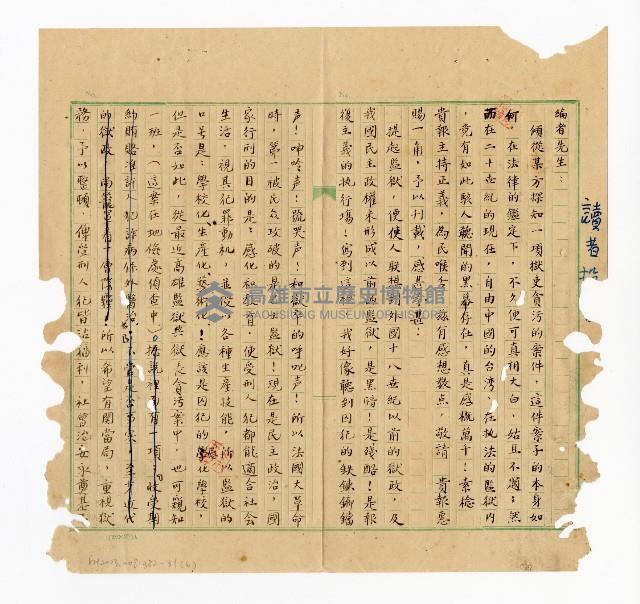 讀者投
編者先生：
頃從某方探知一項獄吏貪污的案件，這件案子的本身如
何在法律的鑑定下，不久便可真相大白，姑且不題；然
而在二十世紀的現在，自由中國的台灣、在執法的監獄內
，竟有如此駭人聽聞的黑幕存在，真是感概萬千！素稔
貴報主持正義，為民喉舌，故有感想数点，敬請 貴報惠
賜一角，予以刊載，感
提起監獄，便使人联想 國十八世紀以前的獄政，及
我國民主政權未形成以前的監獄，是黑暗！是殘酷！是報
復主義的执行場！寫到這 我好像聽到囚犯的鉄鍊鎯鐺
声！呻吟声！號哭声！和獄卒的呼叱声！所以法國大革命
時，第一被民众攻破的是 監獄！現在是民主政治，國
家行刑的目的是：感化和教育，使受刑人犯都能適合社会
生活，視其犯罪動机， 各種生產技能，所以監獄的
口号是：學校化生產化藝術化！應該是囚犯的感化學校，
但是否如此，從最近高雄監獄典獄長貪污案中，也可窺知
一班，（這案在地儉處偵查中）。据説裡面有一項：收受期
約賄賂准許人犯詐病保外醫治，
的獄政，尚 ！所以希望有関當局，重視獄
務，予以整頓，俾受刑人犯皆沾福利，社會治安永奠基
高雄市立歷史博物館
KAOHSIUNG MUSEUM OF HISTORY